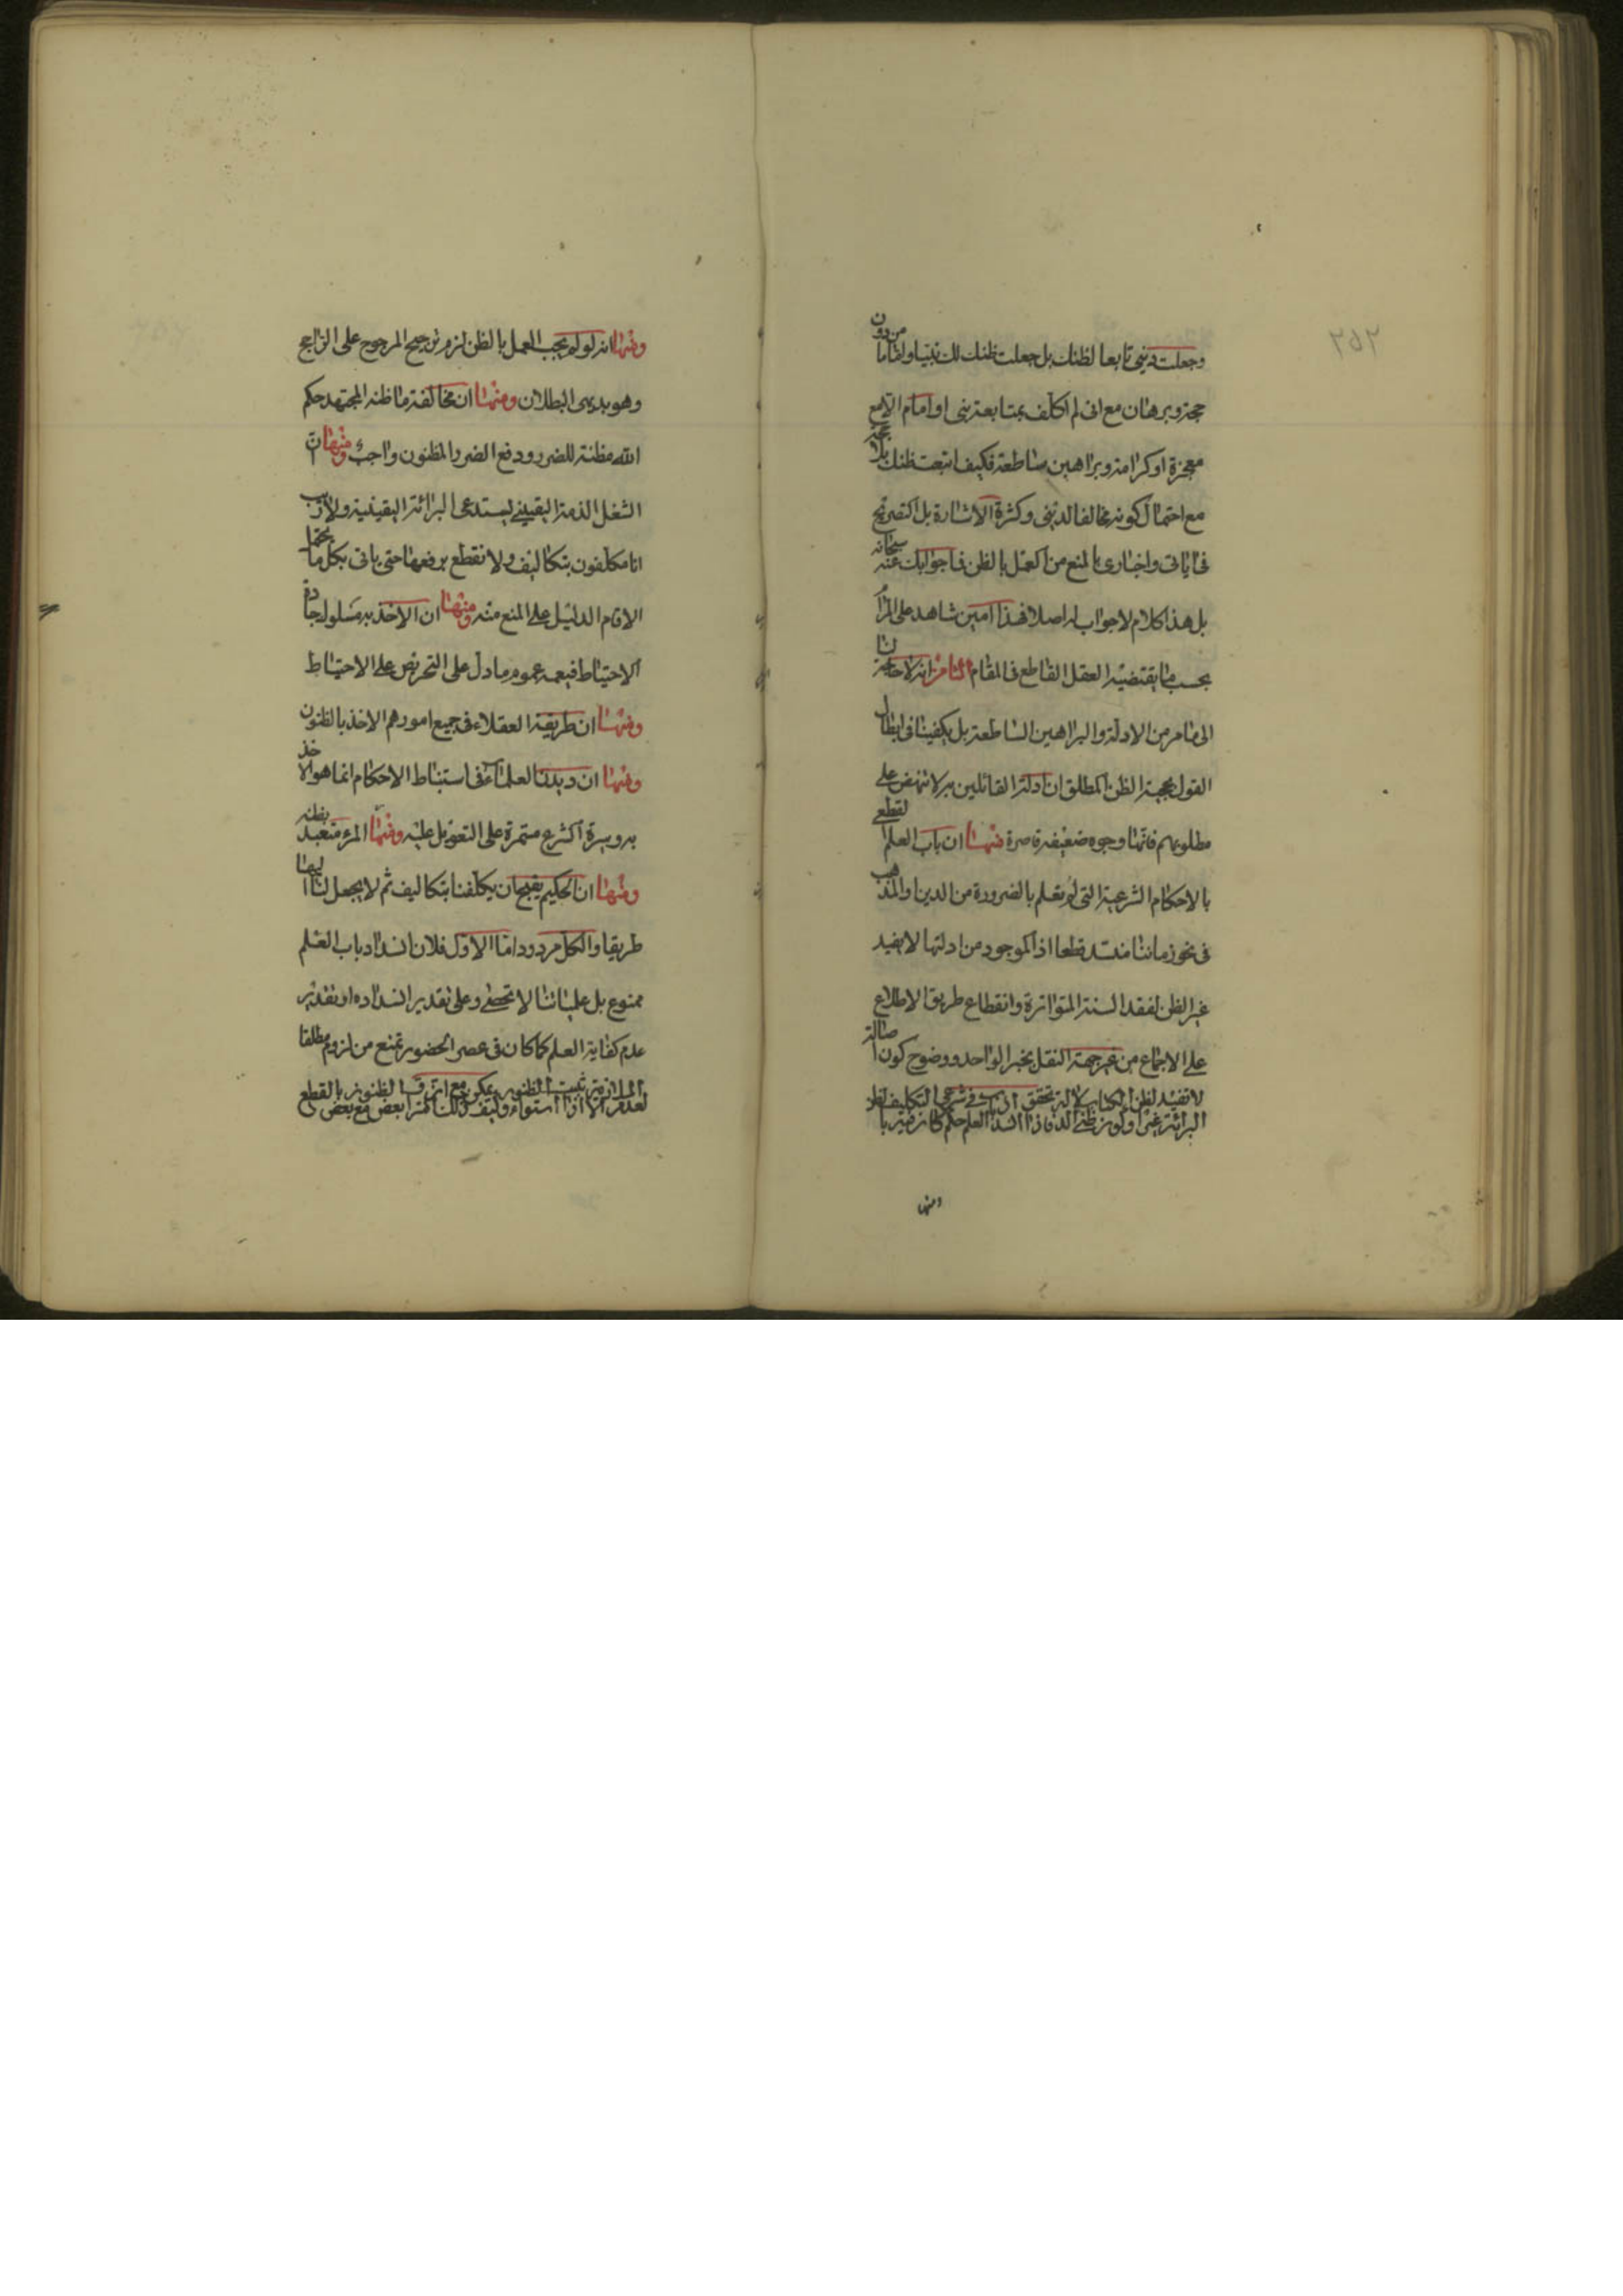 ٢٥٢
وجعلت ديني تابعا لظنك بل جعلت ظنك لك نبيا واماما من دون
حجة وبرهان مع انى لم اكلف بمتابعة نبى او امام الا مع
معجزة او كرامة وبراهين ساطعة فكيف اتبعت ظنك بلا
مع احتمال كونه مخالفا لدينى وكثرة الاشارة بل التصريح
فى اياتى واخبارى بالمنع من العمل بالظن فما جوابك عنه سبحانه
بل هذا كلام لا جواب له اصلا فهذا امين شاهد على المرام
بحسب ما يقتضيه العقل القاطع فى المقام الثامن انه لا حاجة لنا
الى ما مر من الادلة والبراهين الساطعة بل يكفينا فى ابطال
القول بحجية الظن المطلق ان ادلة القائلين به لا تنهض على
مطلوبهم فانها وجوه ضعيفة قاصرة فمنها ان باب العلم القطعي
بالاحكام الشرعية التى لم تعلم بالضرورة من الدين والمذهب
فى نحو زماننا منسد قطعا اذ الموجود من ادلتها لا يفيد
غير الظن لفقد السنة المتواترة وانقطاع طريق الاطلاع
على الاجماع من غير جهة النقل بخبر الواحد ووضوح كون اصالة
البرائة
ومنها
ومنها انه لو لم يجب العمل بالظن لزم ترجيح المرجوح على الراجح
وهو بديهى البطلان ومنها ان مخالفة ما ظنه المجتهد حكم
الله مظنة للضرر ودفع الضرر المظنون واجب ومنها ان
الشغل الذمة اليقينى يستدعى البرائة اليقينية ولا ريب
انا مكلفون بتكاليف ولا نقطع برفعها حتى ياتى بكل ما يحتمل
الا قام الدليل على المنع منه ومنها ان الاخذ به سلوك جادة
الاحتياط فيعمه عموم ما دل على التحريص على الاحتياط
ومنها ان طريقة العقلاء فى جميع امورهم الاخذ بالظنون
ومنها ان ديدن العلماء فى استنباط الاحكام انما هو الاخذ
به وسيرة اكثرهم مستمرة على التعويل عليه ومنها المرء متعبد بظنه
ومنها ان الحكيم يقبح ان يكلفنا بتكاليف ثم لا يجعل لنا اليها
طريقا والكل مردود اما الاول فلان انسداد باب العلم
ممنوع بل علمياتنا لا تحصى وعلى تقدير انسداده او تقدير
عدم كفاية العلم كما كان فى عصر الحضور نمنع من لزوم مطلقا